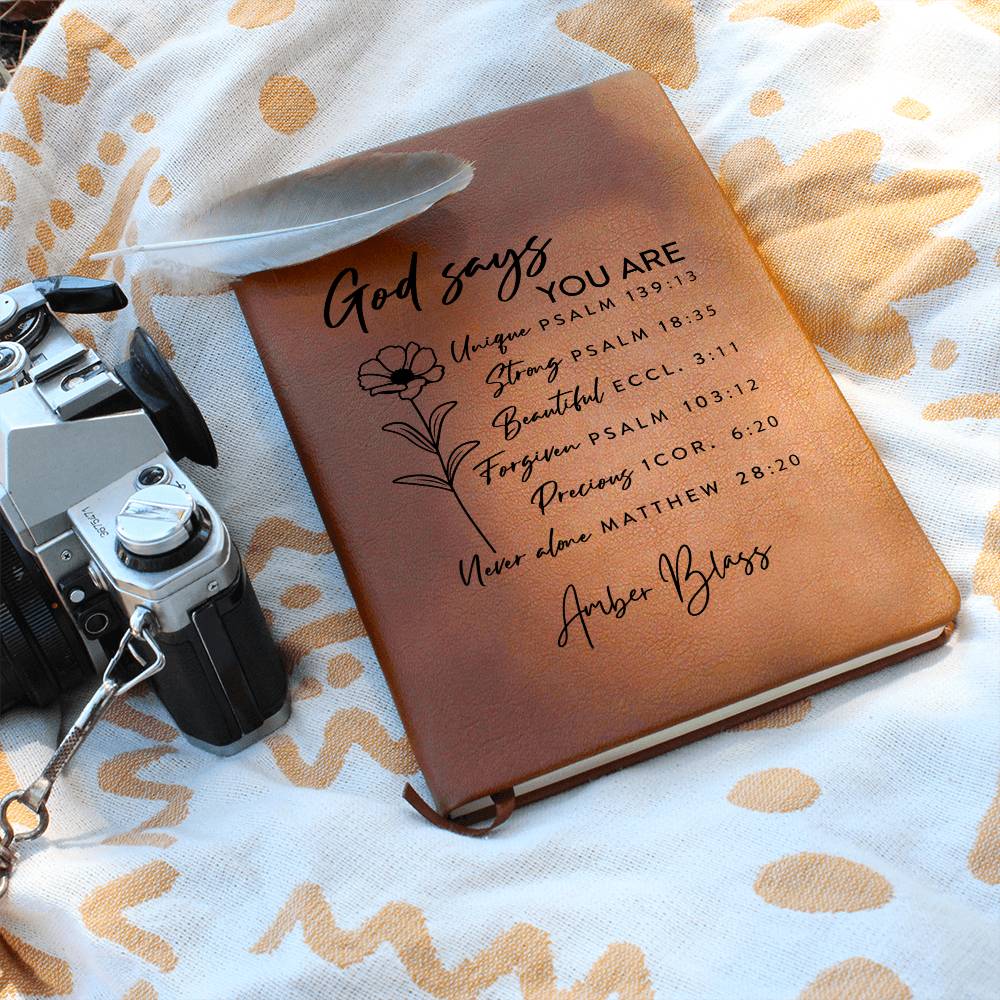 God says
YOU ARE
Unique PSALM 139:13
Strong PSALM 18:35
Beautiful ECCL. 3:11
Forgiven PSALM 103:12
Precious 1COR. 6:20
Never alone MATTHEW 28:20
Amber Blass
3675471